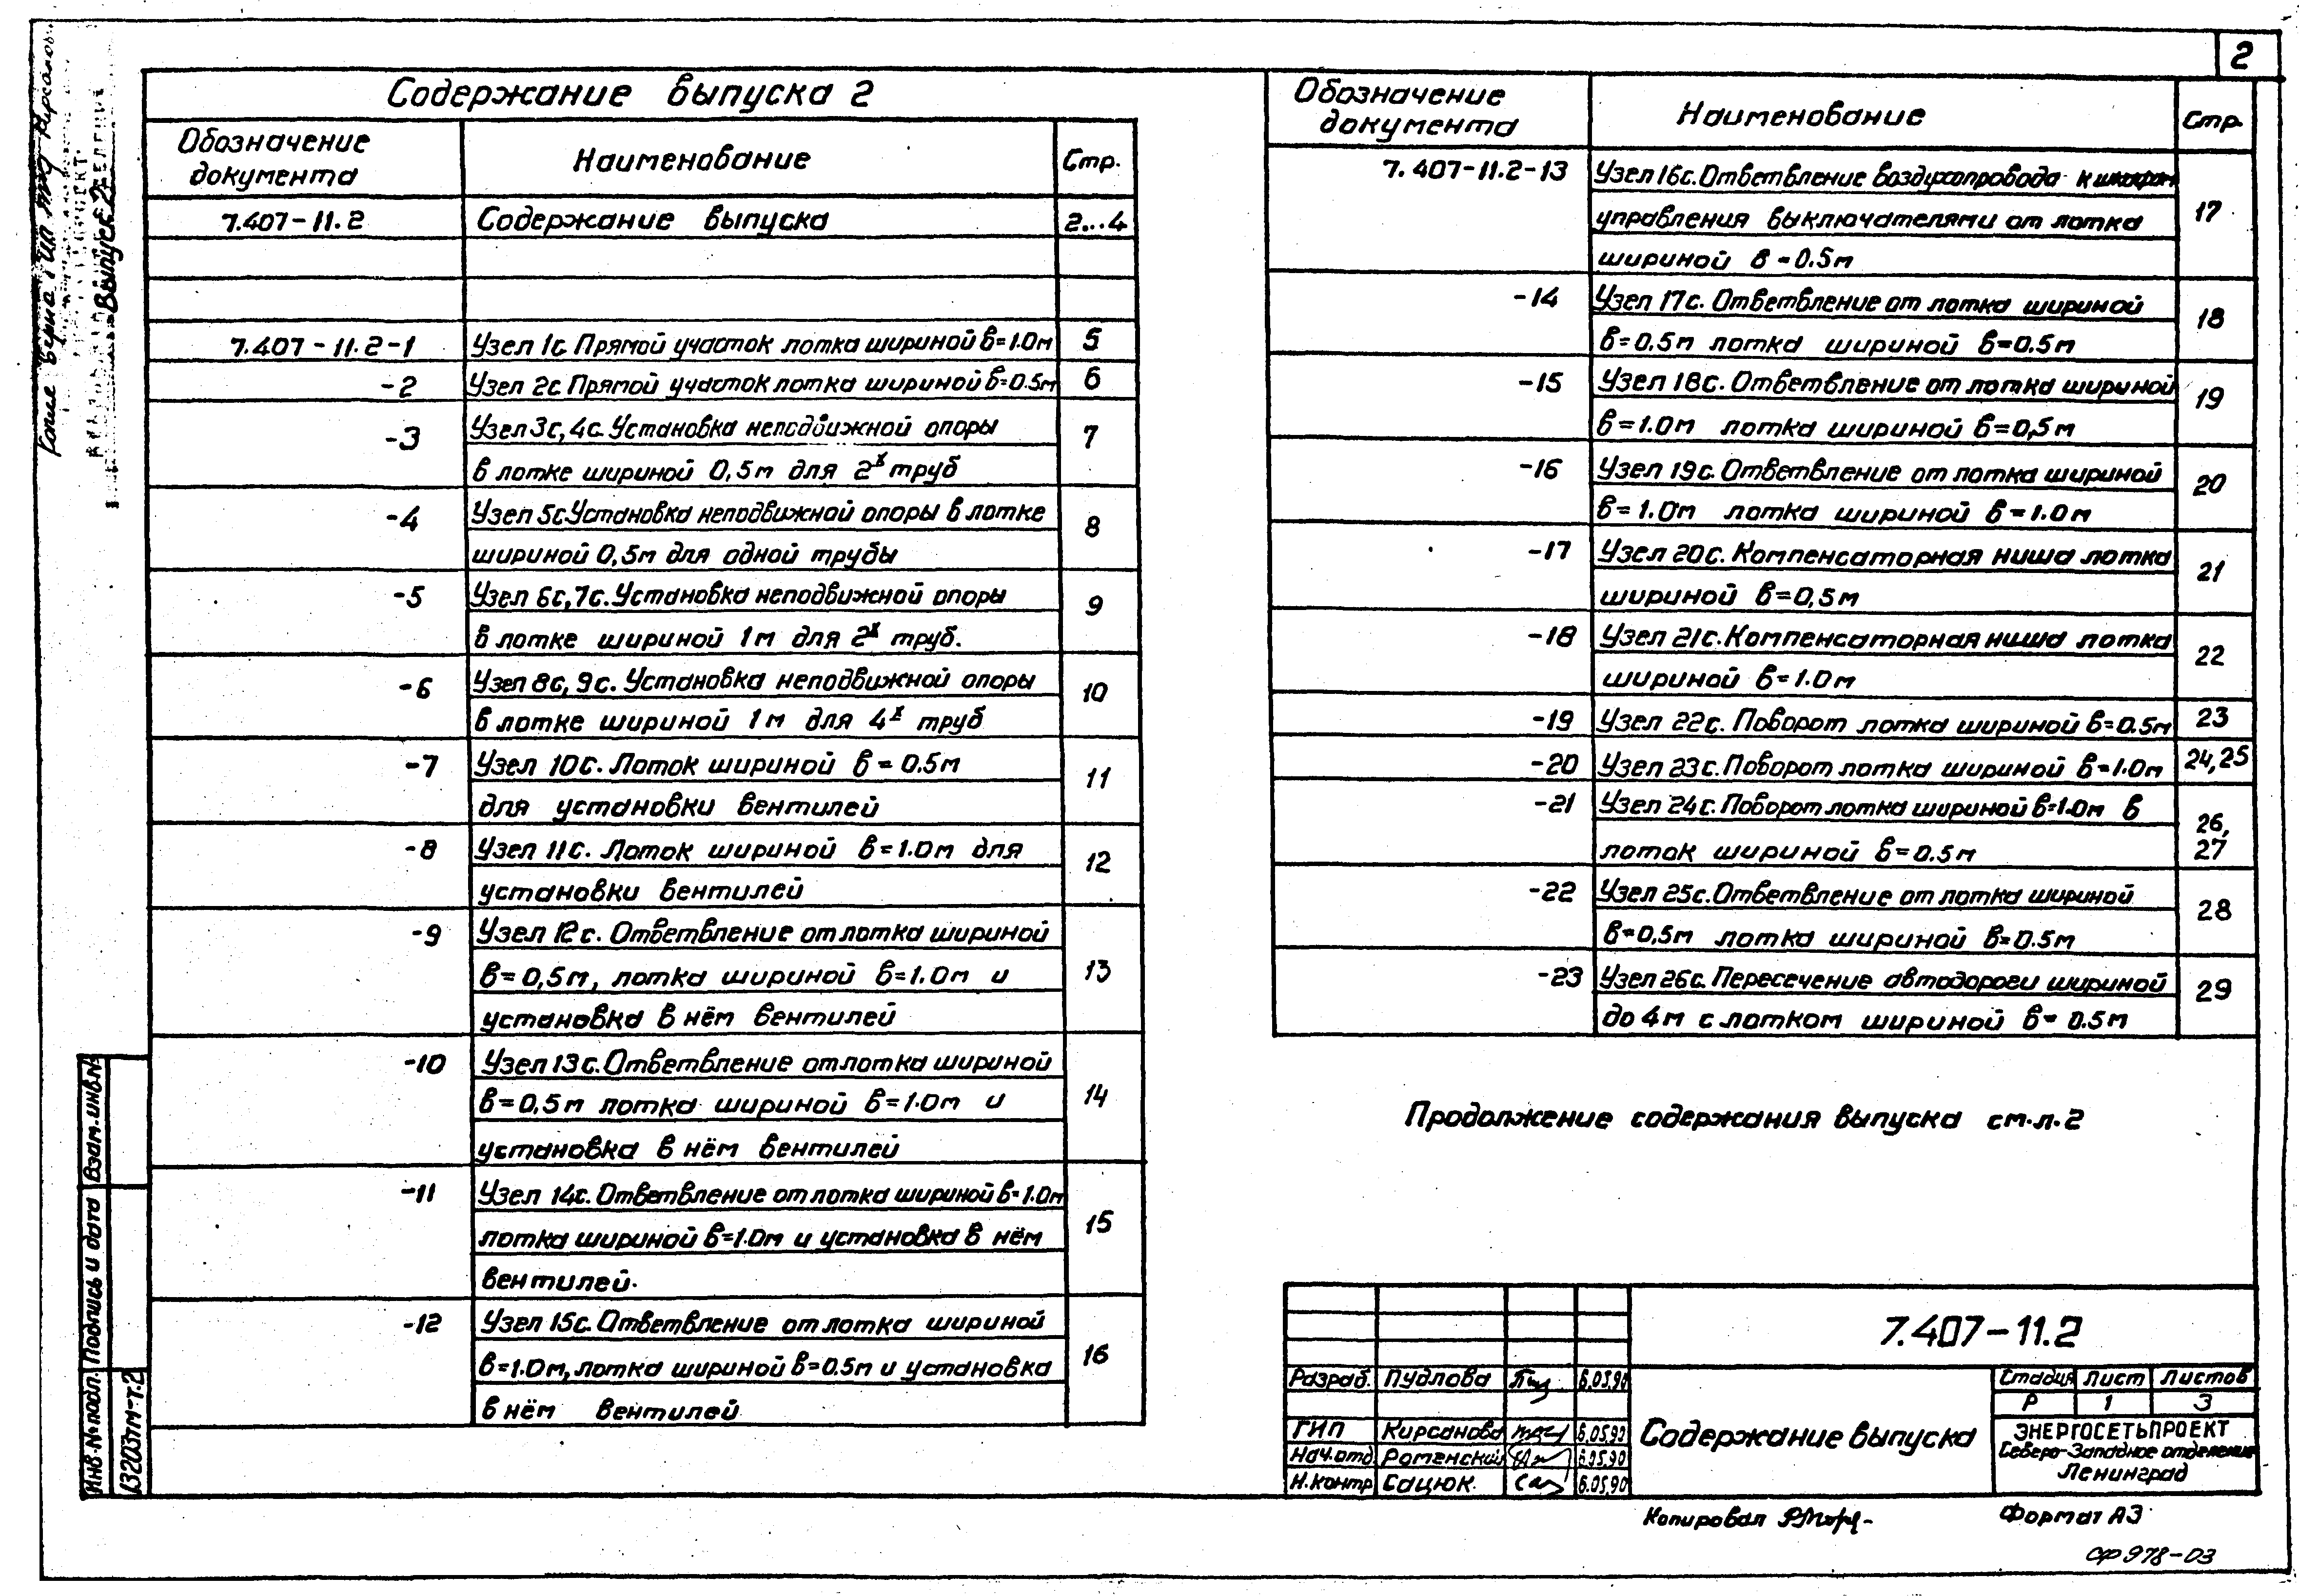 2
Содержание выпуска 2
Обозначение документа
Наименование
Стр.
7.407-11.2
Содержание выпуска
2...4
7.407-11.2-1
Узел 1с. Прямой участок лотка шириной в=1.0м
5
-2
Узел 2с Прямой участок лотка шириной в=0.5м
6
-3
Узел 3с, 4с. Установка неподвижной опоры
в лотке шириной 0,5м для 2х труб
7
-4
Узел 5с Установка неподвижной опоры в лотке
шириной 0,5м для одной трубы
8
-5
Узел 6с, 7с. Установка неподвижной опоры
в лотке шириной 1м для 2х труб.
9
-6
Узел 8с, 9с. Установка неподвижной опоры
в лотке шириной 1м для 4х труб
10
-7
Узел 10с. Лоток шириной в=0.5м
для установки вентилей
11
-8
Узел 11с. Лоток шириной в=1.0м для
установки вентилей
12
-9
Узел 12с. Ответвление от лотка шириной
в=0,5м, лотка шириной в=1.0м и
установка в нём вентилей
13
-10
Узел 13с. Ответвление от лотка шириной
в=0,5м лотка шириной в=1.0м и
установка в нём вентилей
14
-11
Узел 14с. Ответвление от лотка шириной в=1.0м
лотка шириной в=1.0м и установка в нём
вентилей.
15
-12
Узел 15с. Ответвление от лотка шириной
в=1.0м, лотка шириной в=0.5м и установка
в нём вентилей
16
Обозначение документа
Наименование
Стр.
7.407-11.2-13
Узел 16с. Ответвление воздухопровода к шкафам
управления выключателями от лотка
шириной в=0.5м
17
-14
Узел 17с. Ответвление от лотка шириной
в=0.5м лотка шириной в=0.5м
18
-15
Узел 18с. Ответвление от лотка шириной
в=1.0м лотка шириной в=0,5м
19
-16
Узел 19с. Ответвление от лотка шириной
в=1.0м лотка шириной в=1.0м
20
-17
Узел 20с. Компенсаторная ниша лотка
шириной в=0,5м
21
-18
Узел 21с. Компенсаторная ниша лотка
шириной в=1.0м
22
-19
Узел 22с. Поворот лотка шириной в=0.5м
23
-20
Узел 23с. Поворот лотка шириной в=1.0м
24,25
-21
Узел 24с. Поворот лотка шириной в=1.0м в
лоток шириной в=0.5м
26, 27
-22
Узел 25с. Ответвление от лотка шириной
в=0,5м лотка шириной в=0.5м
28
-23
Узел 26с. Пересечение автодороги шириной
до 4м с лотком шириной в=0.5м
29
Продолжение содержания выпуска см.л.2
7.407-11.2
Разраб. Пудлова 6.05.90
ГИП Кирсанова 6.05.90
Нач.отд Роменский 6.05.90
Н.контр Сацюк 6.05.90
Содержание выпуска
Стадия Лист Листов
Р 1 3
ЭНЕРГОСЕТЬПРОЕКТ
Северо-Западное отделение
Ленинград
Копировал
Формат А3
сф 978-03
Инв.№ подл. Подпись и дата Взам.инв.№
13203тм-т.2
Копие верна ГИП Кирсанов
Выпуск 2